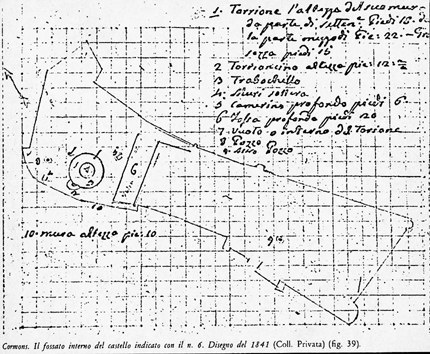 1. Torrione l'altezza del suo mur-
da parte di Setten.e Piedi 15. d
la parte mezzodi Pie: 22. - Gro
sezza piedi 15
2 Torrioncino altezza pie: 12:
3 Trabochello
4. Muri
5 Camerino profondo piedi 6.
6 Fossa profonda piedi 20
7. Vuoto o interno del Torione
8 Pozzo
9. altro Pozzo
6
10
10. mura altezza pie: 10
Cormons. Il fossato interno del castello indicato con il n. 6. Disegno del 1841 (Coll. Privata) (fig. 39).